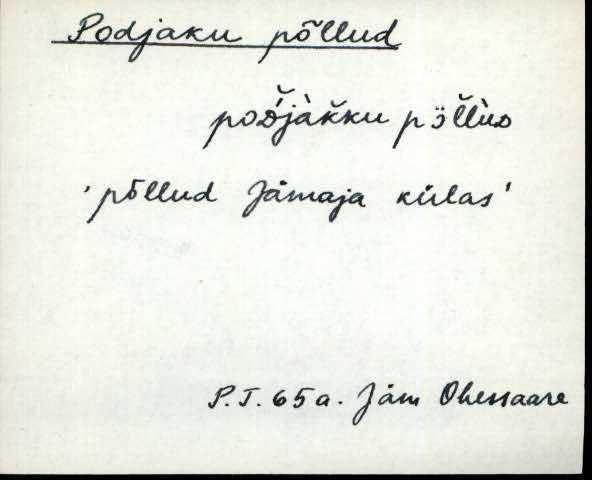 Podjaku põllud
poᴅ́jàk̆ku pö̆l̆lùᴅ
'põllud Jämaja külas'
P.T. 65 a. Jäm Ohessaare